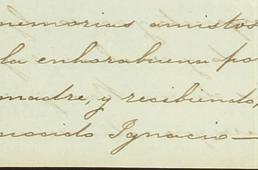 memorias amistos
la enhorabuena po
madre, y recibiendo,
nosido Ignacio—